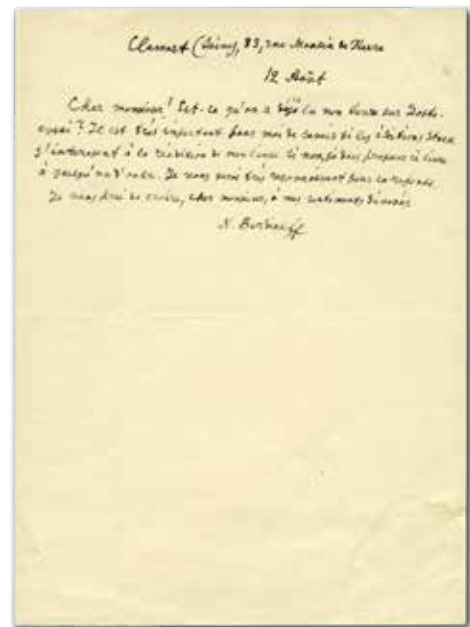 Clamart (Seine), 83, rue Moulin de Pierre
12 Août
Cher monsieur! Est-ce qu'on a déjà lu mon livre sur Dosto-
evski? Il est très important pour moi de savoir si les éditions Stock
s'intéressent à la traduction de mon livre. Si non, je dois proposer ce livre
à quelqu'un d'autre. Je vous serai très reconnaissant pour la réponse.
Je vous prie de croire, cher monsieur, à mes sentiments dévoués
N. Berdiaeff